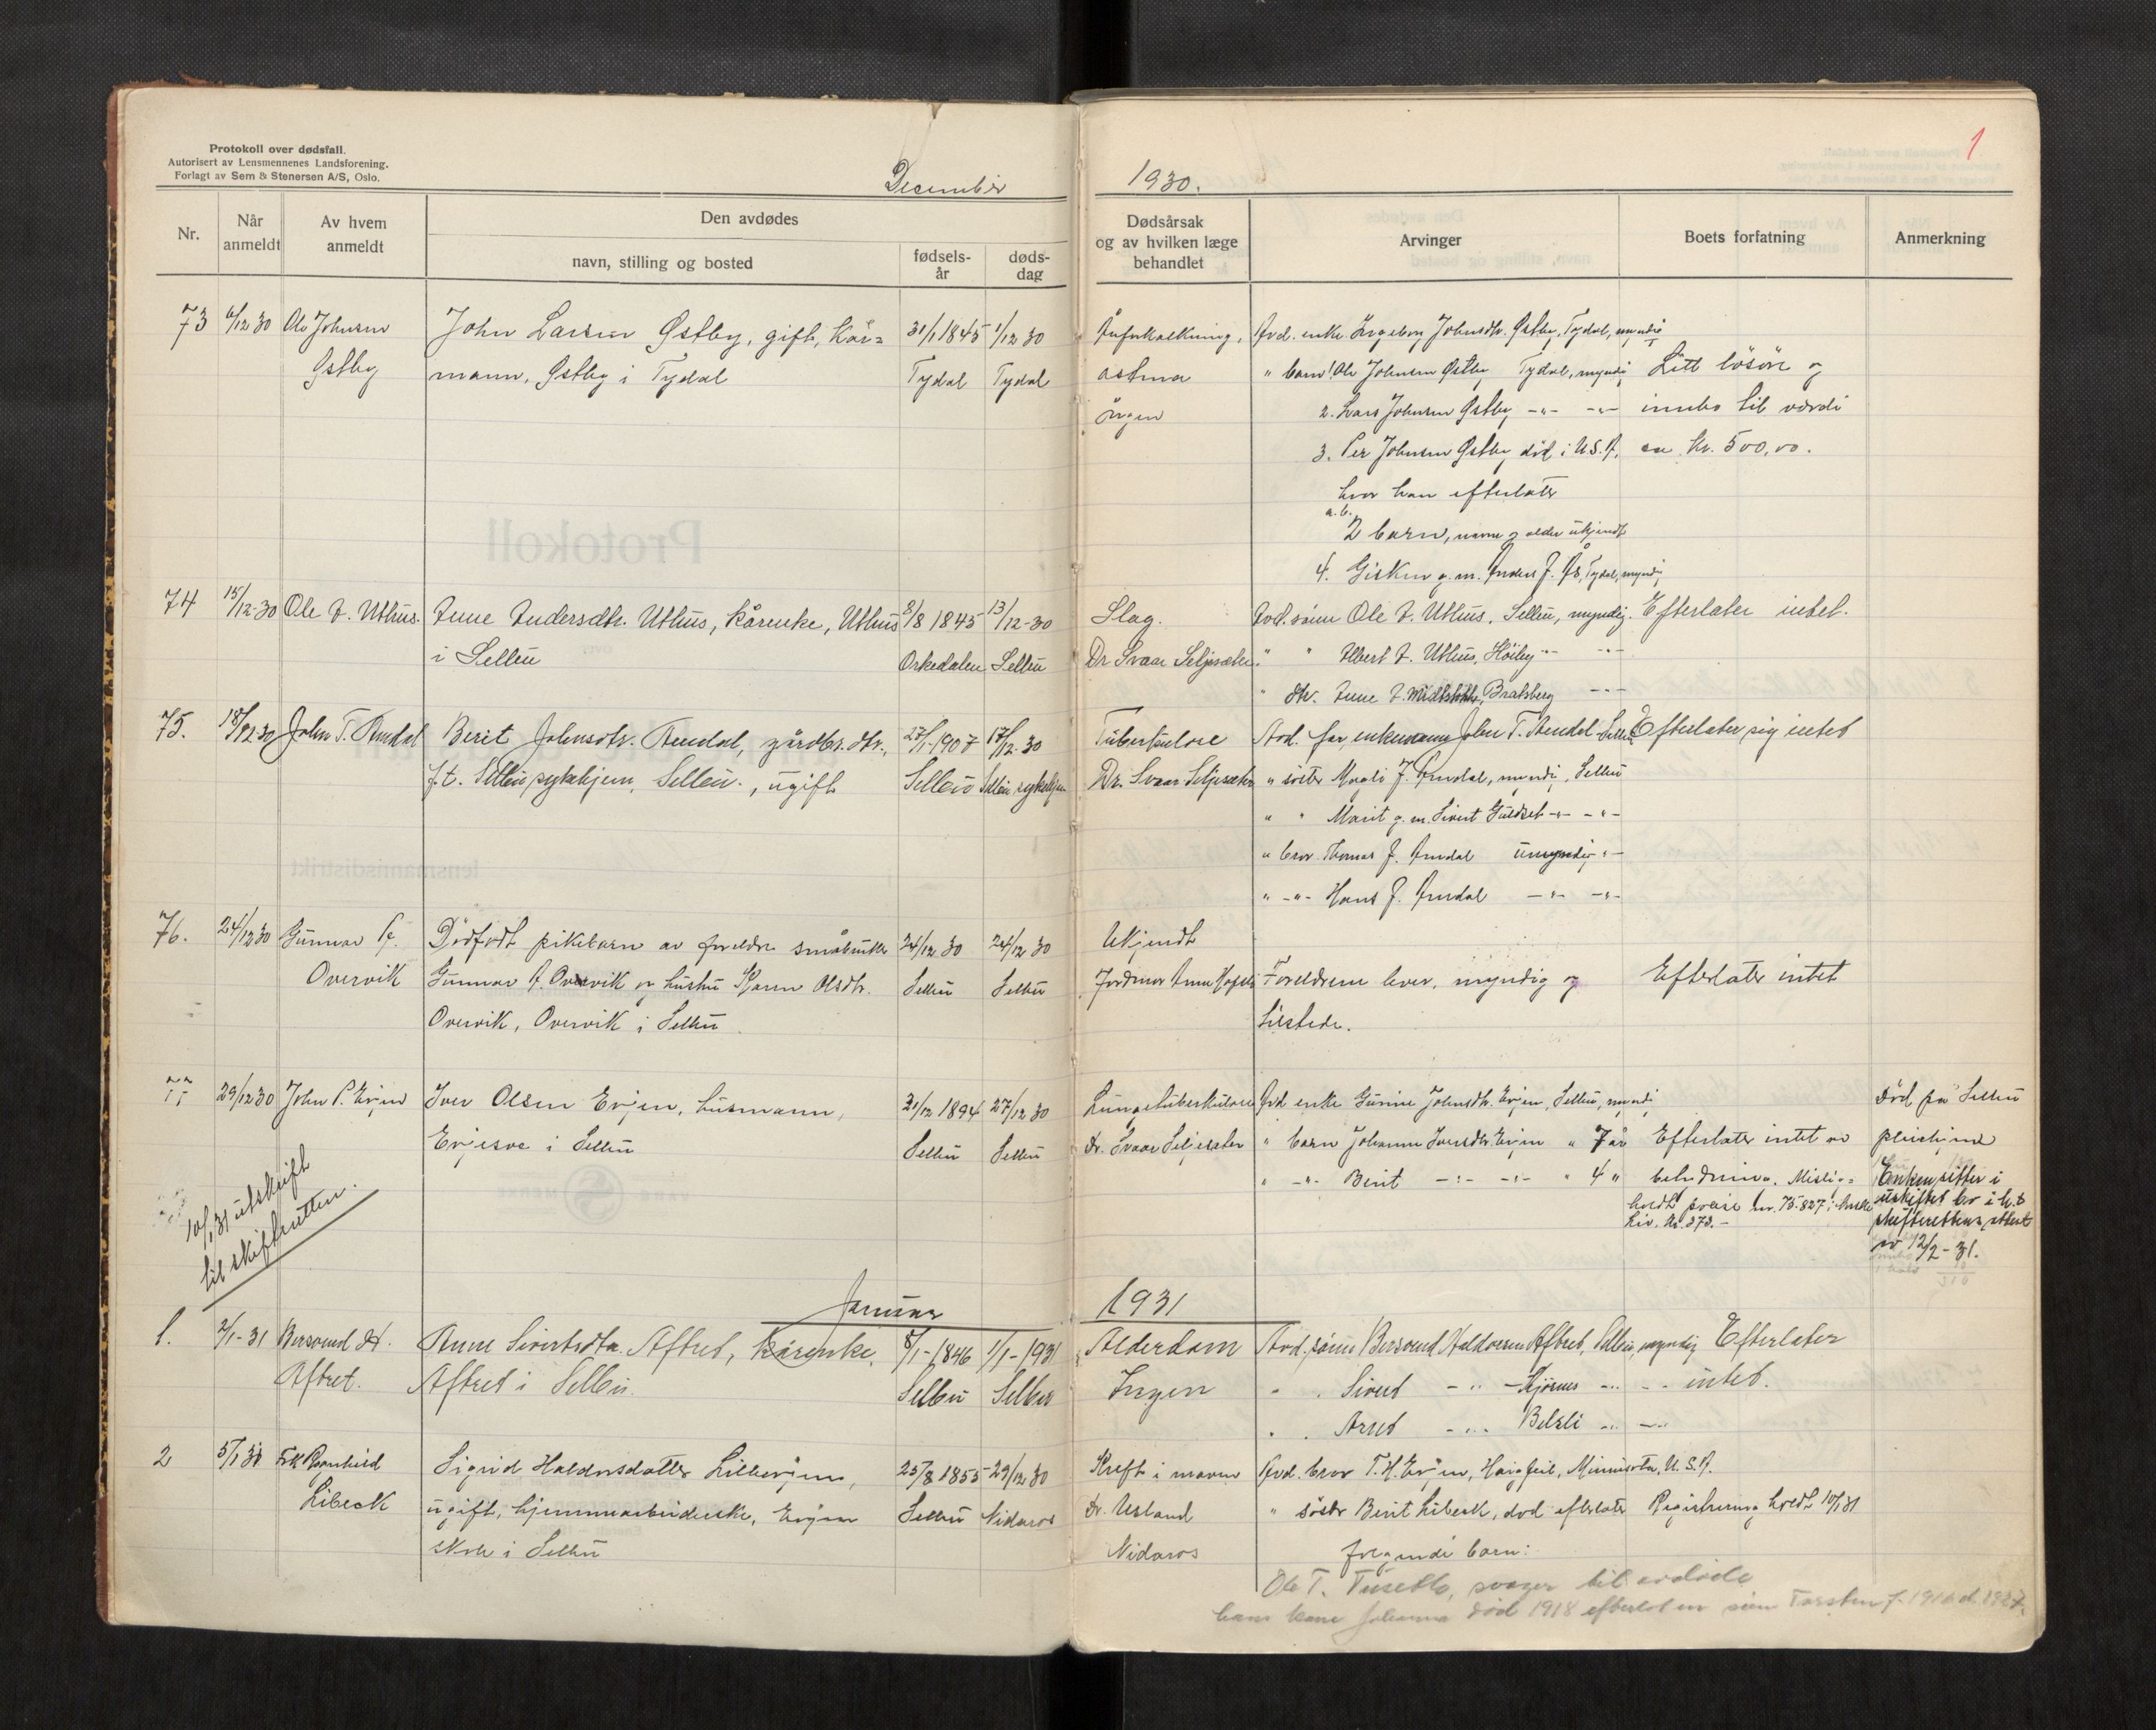 Protokoll over dødsfall.
Autorisert av Lensmennenes Landsforening.
Forlagt av Sem & Stenersen A/S, Oslo.
December 1930.
1
Nr.
Når anmeldt
Av hvem anmeldt
Den avdødes
navn, stilling og bosted
fødselsår
dødsdag
Dødsårsak og av hvilken læge behandlet
Arvinger
Boets forfatning
Anmerkning
73 6/12 30 Ole Johnsen John Larsen Østby, gift, kår= 31/1 1845 1/12 30 Åreforkalkning, Avd. enke Ingeborg Johnsdtr. Østby, Tydal, myndig
Østby mann, Østby i Tydal Tydal Tydal astma " barn 1. Ole Johnsen Østby Tydal, myndig Litt løsøre og
Ingen 2. Lars Johnsen Østby -"- -"- innbo til værdi
3. Per Johnsen Østby død i U.S.A. ca kr. 500,00.
hvor han efterlater
a.b.
2 barn, navn og alder ukjendt
4. Gisken g.m. Anders J. Ås, Tydal, myndig
74 15/12-30 Ole A. Uthus. Anne Andersdtr. Uthus, kårenke, Uthus 8/8 1845 13/12-30 Slag. Avd. sønn Ole A. Uthus, Selbu, myndig. Efterlater intet.
i Selbu Orkedalen Selbu Dr Svaar Seljesæter " " Albert A. Uthus, Høiby -"- -"-
" dtr. Anne A. Midtstokke, Bratsberg -"-
75. 18/12 30 John T. Amdal Berit Johnsdtr. Amdal, gårdbr. dtr., 27/1-1907 17/12-30 Tuberkulose Avd. far, enkemann John T. Amdal Selbu Efterlater sig intet
f.t. Selbu sykehjem, Selbu., ugift Selbu Selbu sykehjem Dr. Svaar Seljesæter " søster Magli J. Amdal, myndig, Selbu
" " Marit g.m. Sivert Guldset -"- -"-
" bror Thomas J. Amdal umyndig -"-
" -"- Hans J. Amdal -"- -"-
76. 24/12 30 Gunnar P. Dødfødt pikebarn av foreldre småbruker 24/12 30 24/12 30 Ukjendt
Overvik Gunnar P. Overvik og hustru Karen Olsdtr. Selbu Selbu Jordmor Anna Foreldrene lever, myndig og Efterlater intet
Overvik, Overvik i Selbu tilstede.
77 29/12 30 John P. Evjen Iver Olsen Evjen, husmann, 21/12 1894 27/12 30 Lungetuberkulose Avd enke Gurine Johnsdtr. Evjen, Selbu, myndig Død på Selbu
Evjesve i Selbu Selbu Selbu Dr. Svaar Seljesæter " barn Johanna Iversdtr. Evjen " 7 år Efterlater intet av pleiehjem
" -"- Berit -"- -"- " 4 " betydning. Mislig=
holdt polise nr. 75.827 i
Liv. kr. 373.-
Enken sitter i
uskiftet bo i h.t.
skifterettens attest
av 12/2-31.
10/1 31 utskrift
til skifteretten.
Januar 1931
1. 2/1-31 Bersvend H. Anne Sivertsdtr. Aftret, Kårenke, 8/1-1846 1/1-1931 Alderdom Avd. sønn Bersvend Haldorsen Aftret, Selbu, myndig Efterlater
Aftret. Aftret i Selbu. Selbu Selbu Ingen " " Sivert -"- Kjøsnes -"- -"- intet.
" " Arnt -"- Belsli -"- -"-
2 5/1 31 Frk Ragnhild Sigrid Haldorsdatter Lillevjen, 25/8 1855 29/12 30 Kreft i maven Avd. bror T. H. Evjen, Minnesota, U.S.A.
Libeck ugift, hjemmearbeiderske, Evjen Selbu Nidaros Dr. Usland " søster Berit Libeck, død efterlater Registrering holdt 10/1 31
skole i Selbu Nidaros følgende barn:
Ole T. Tuseth, svoger til avdøde
hans kone Johanna død 1918 efterlot en sønn Torsten f. 1916 d. 1927.